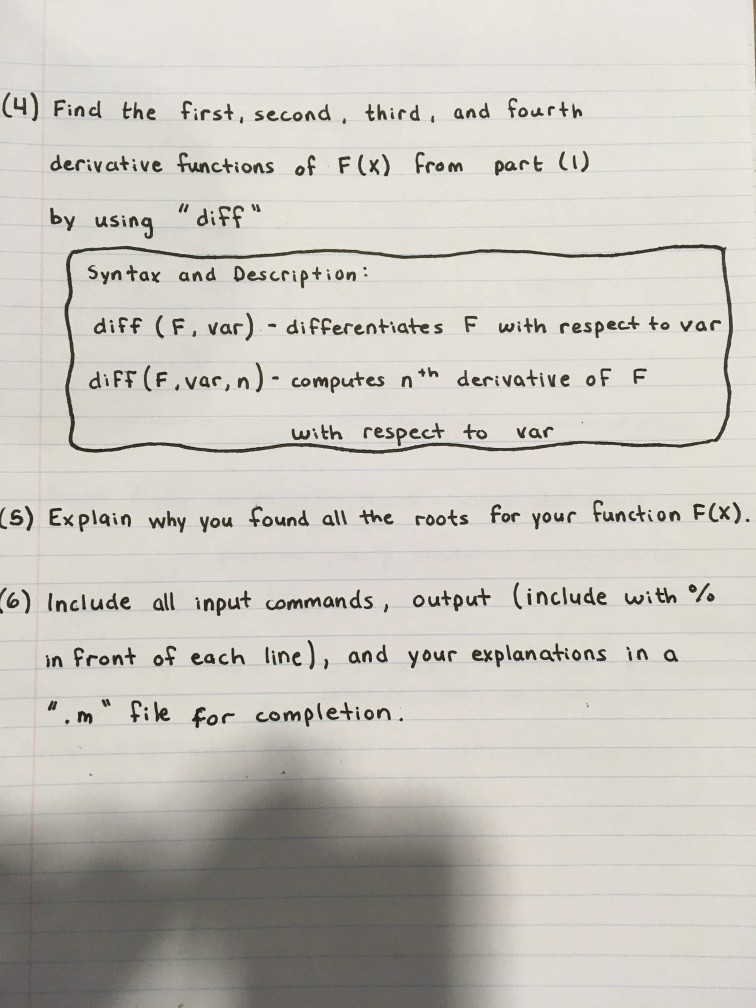 (4) Find the first, second, third, and fourth
derivative functions of F(x) from part (1)
by using "diff"
Syntax and Description:
diff (F, var) - differentiates F with respect to var
diff (F, var, n) - computes nth derivative of F
with respect to var
(5) Explain why you found all the roots for your function F(x).
(6) Include all input commands, output (include with %
in front of each line), and your explanations in a
".m" file for completion.